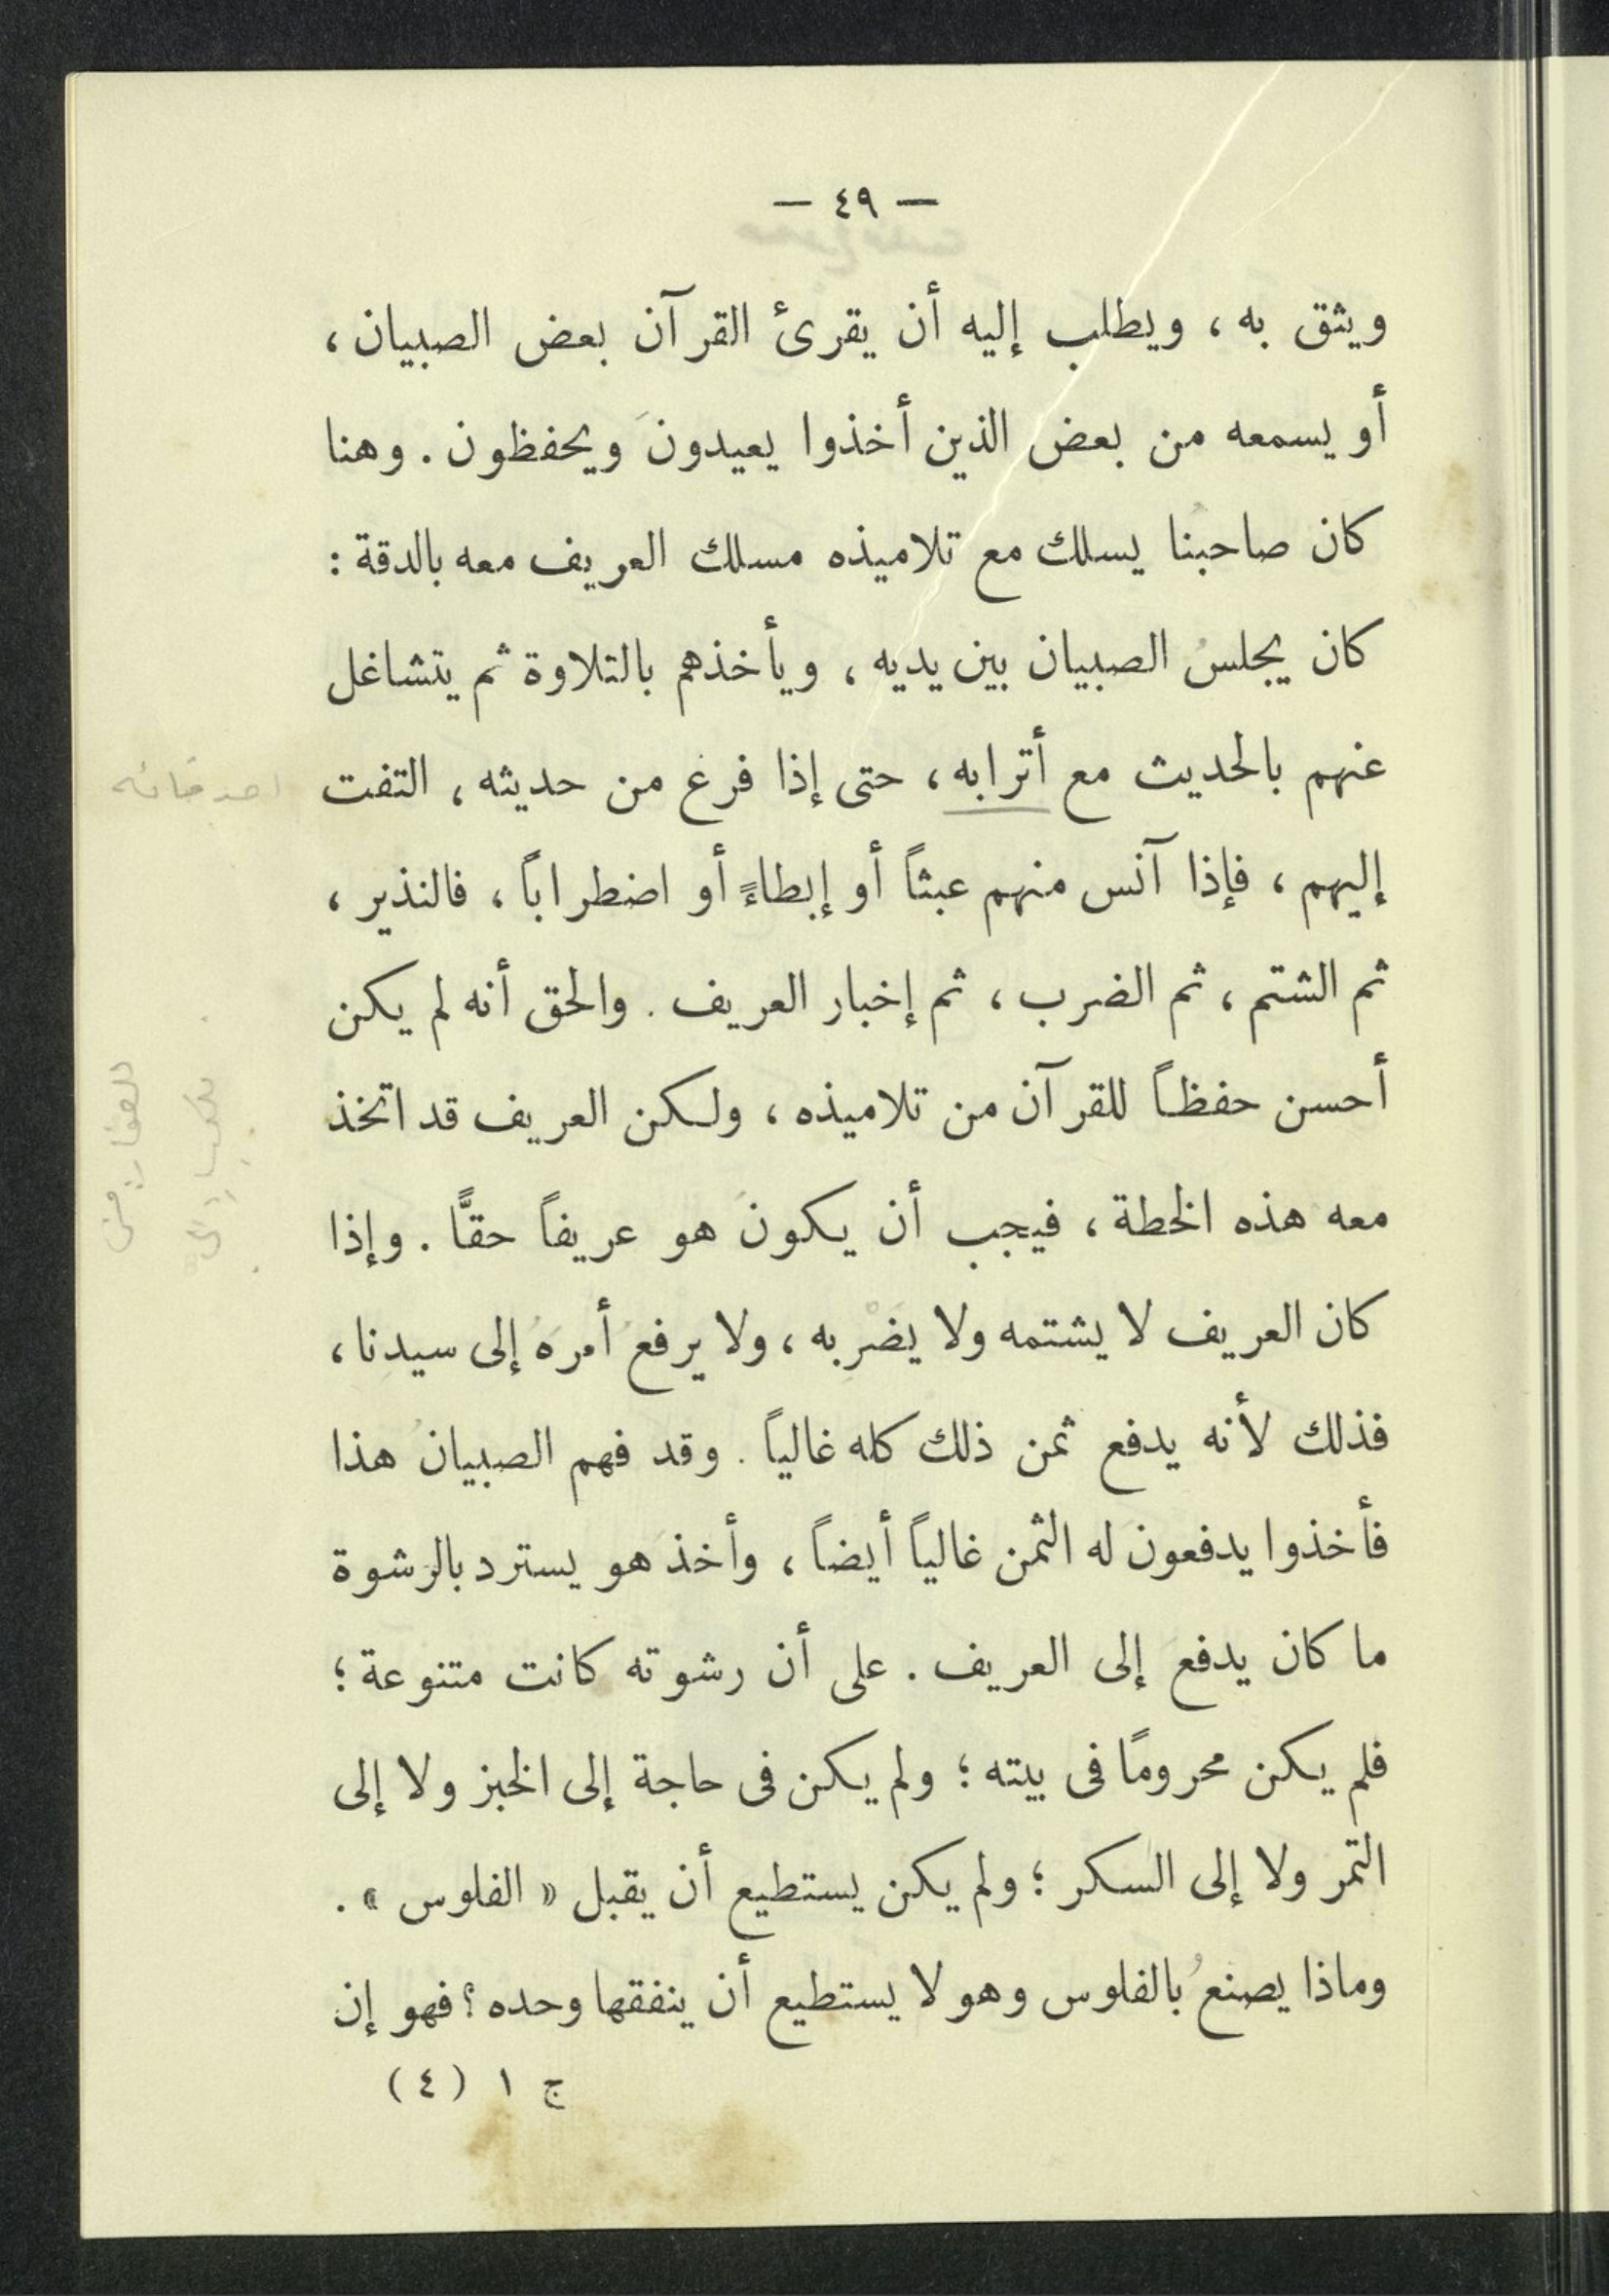 — ٤٩ —
ويثق به ، ويطلب إليه أن يقرئ القرآن بعض الصبيان ،
أو يسمعه من بعض الذين أخذوا يعيدونَ ويحفظون . وهنا
كان صاحبنا يسلك مع تلاميذه مسلك العريف معه بالدقة :
كان يجلسُ الصبيان بين يديه ، ويأخذهم بالتلاوة ثم يتشاغل
عنهم بالحديث مع أترابه ، حتى إذا فرغ من حديثه ، التفت
اصدقائه
إليهم ، فإذا آنس منهم عبثاً أو إبطاءً أو اضطراباً ، فالنذير ،
ثم الشتم ، ثم الضرب ، ثم إخبار العريف . والحق أنه لم يكن
أحسن حفظاً للقرآن من تلاميذه ، ولكن العريف قد اتخذ
معه هذه الخطة ، فيجب أن يكونَ هو عريفاً حقًّا . وإذا
كان العريف لا يشتمه ولا يضْرِبه ، ولا يرفعُ أمرَهُ إلى سيدنا ،
فذلك لأنه يدفع ثمن ذلك كله غالياً . وقد فهم الصبيانُ هذا
فأخذوا يدفعونَ له الثمن غالياً أيضاً ، وأخذَ هو يسترد بالرشوة
ما كان يدفعَ إلى العريف . على أن رشوته كانت متنوعة ؛
فلم يكن محرومًا في بيته ؛ ولم يكن في حاجة إلى الخبز ولا إلى
التمر ولا إلى السكر ؛ ولم يكن يستطيع أن يقبل « الفلوس » .
وماذا يصنعُ بالفلوس وهو لا يستطيع أن ينفقها وحده ؟ فهو إن
ج ١ (٤)